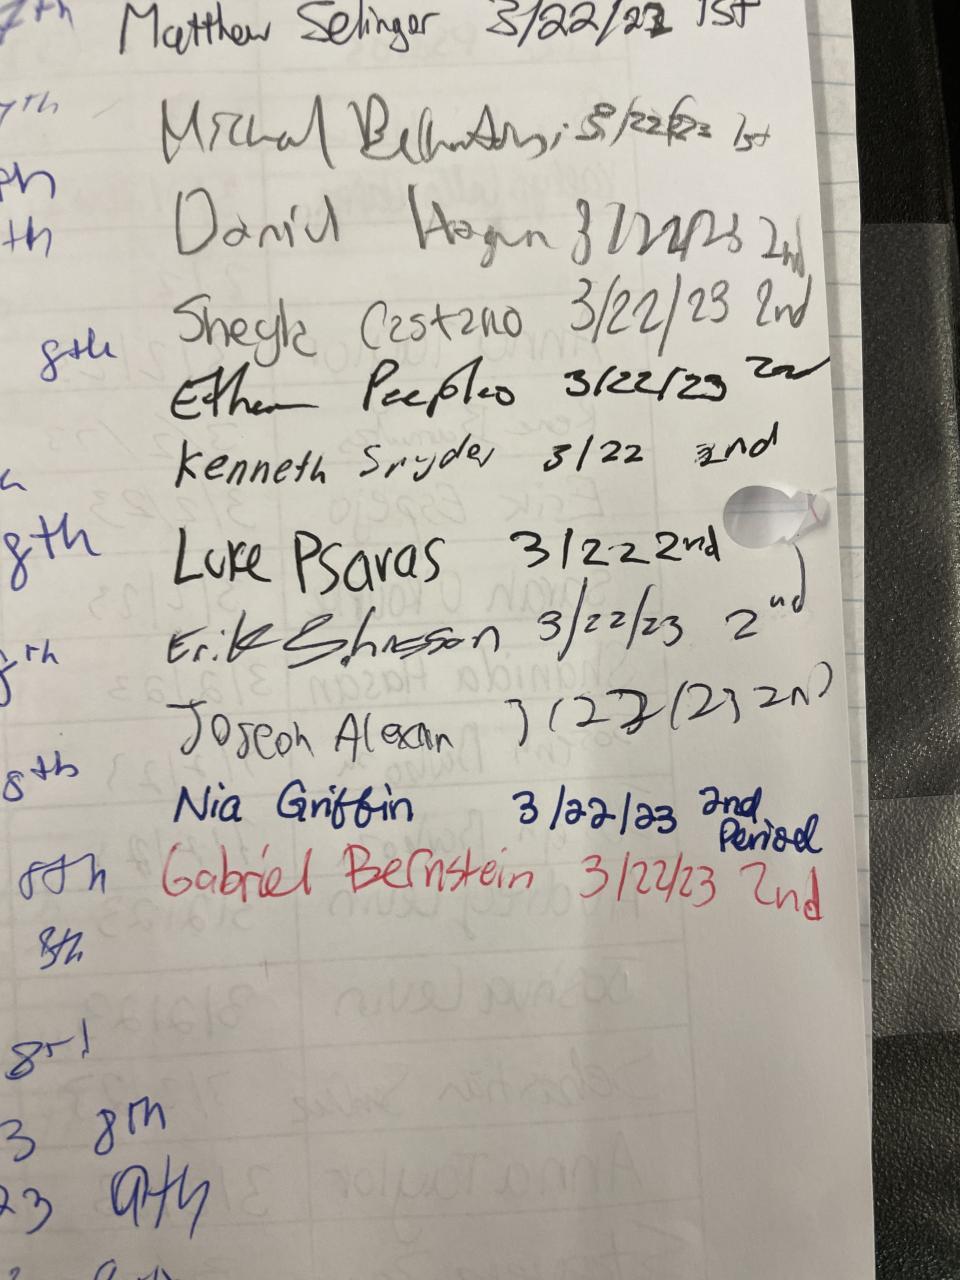 7th Matthew Selinger 3/22/23 1st
7th Michael 3/22/23 1st
th
th Daniel Hagen 3/22/23 2nd
Sheyla Castano 3/22/23 2nd
8th
Ethan Peeples 3/22/23 2nd
Kenneth Snyder 3/22 2nd
8th Luke Psaras 3/22 2nd
Erik 3/22/23 2nd
th
Joseph Alexan 3/22/23 2nd
8th
Nia Griffin 3/22/23 2nd Period
8th Gabriel Bernstein 3/22/23 2nd
8th
8rd
3 8th
23 9th